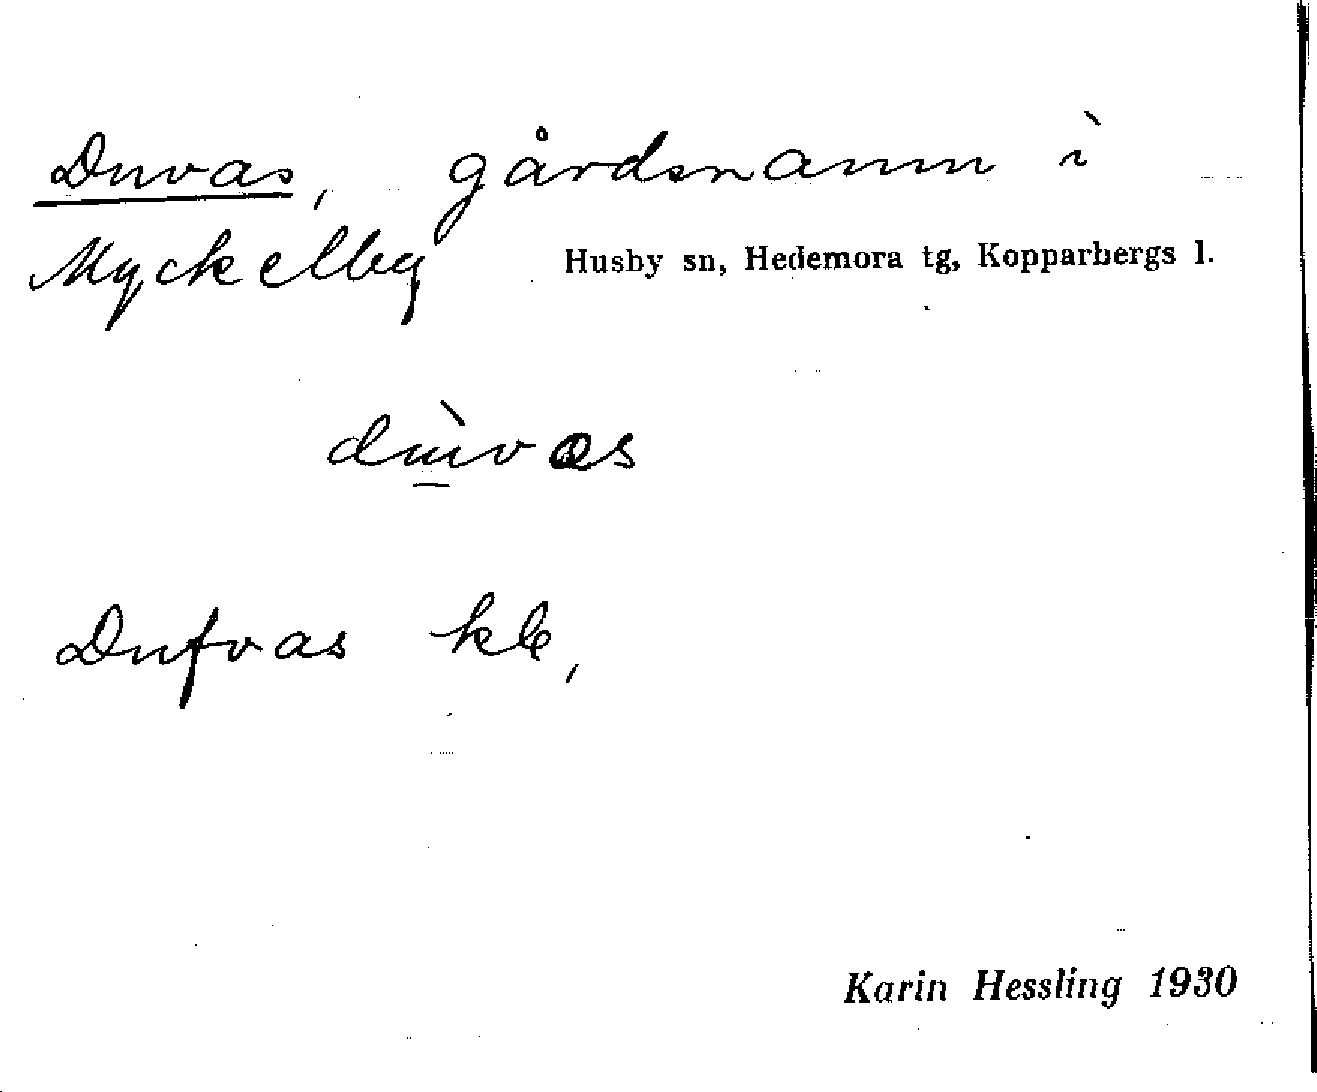 Duvas, gårdsnamn i
Myckelby Husby sn, Hedemora tg, Kopparbergs l.
dùvas
Dufvas kb,
Karin Hessling 1930